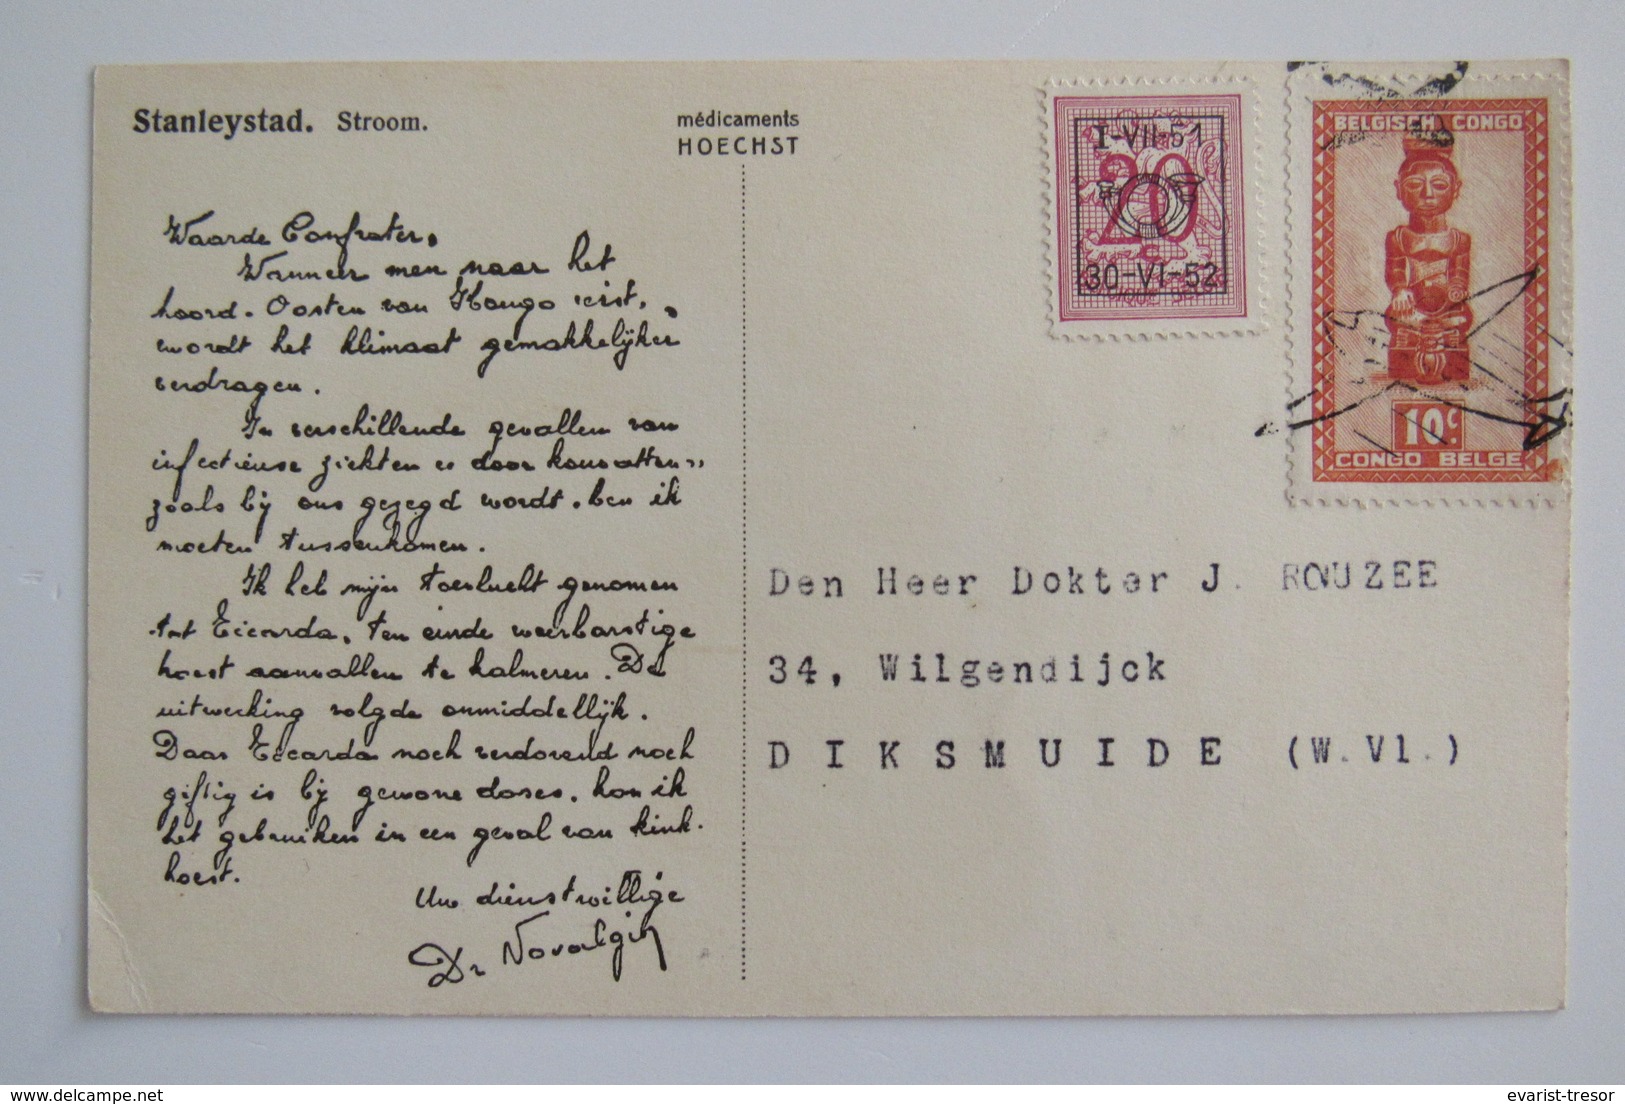 Stanleystad. Stroom.
médicaments
HOECHST
Waarde Confrater,
Wanneer men naar het
Noord-Oosten van Kongo reist,
wordt het klimaat gemakkelijker
verdragen.
In verschillende gevallen van
infectieuse ziekten door
zoals bij ons gezegd wordt, ben ik
moeten tussenkomen.
Ik heb mijn toevlucht genomen
tot Eccarda, ten einde weerbarstige
hoest aanvallen te kalmeren. De
uitwerking volgde onmiddellijk.
Daar Eccarda noch verdovend noch
giftig is bij gewone doses, kon ik
het gebruiken in een geval van kink-
hoest.
Uw dienstwillige
Dr Novalgin
I-VII-51
20
30-VI-52
BELGISCH CONGO
10c.
CONGO BELGE
Den Heer Dokter J. ROUZEE
34, Wilgendijck
DIKSMUIDE (W.Vl.)
evarist-tresor